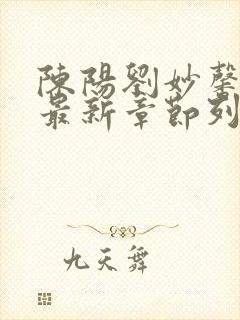 陳陽劉妙馨
最新章節列
九天舞